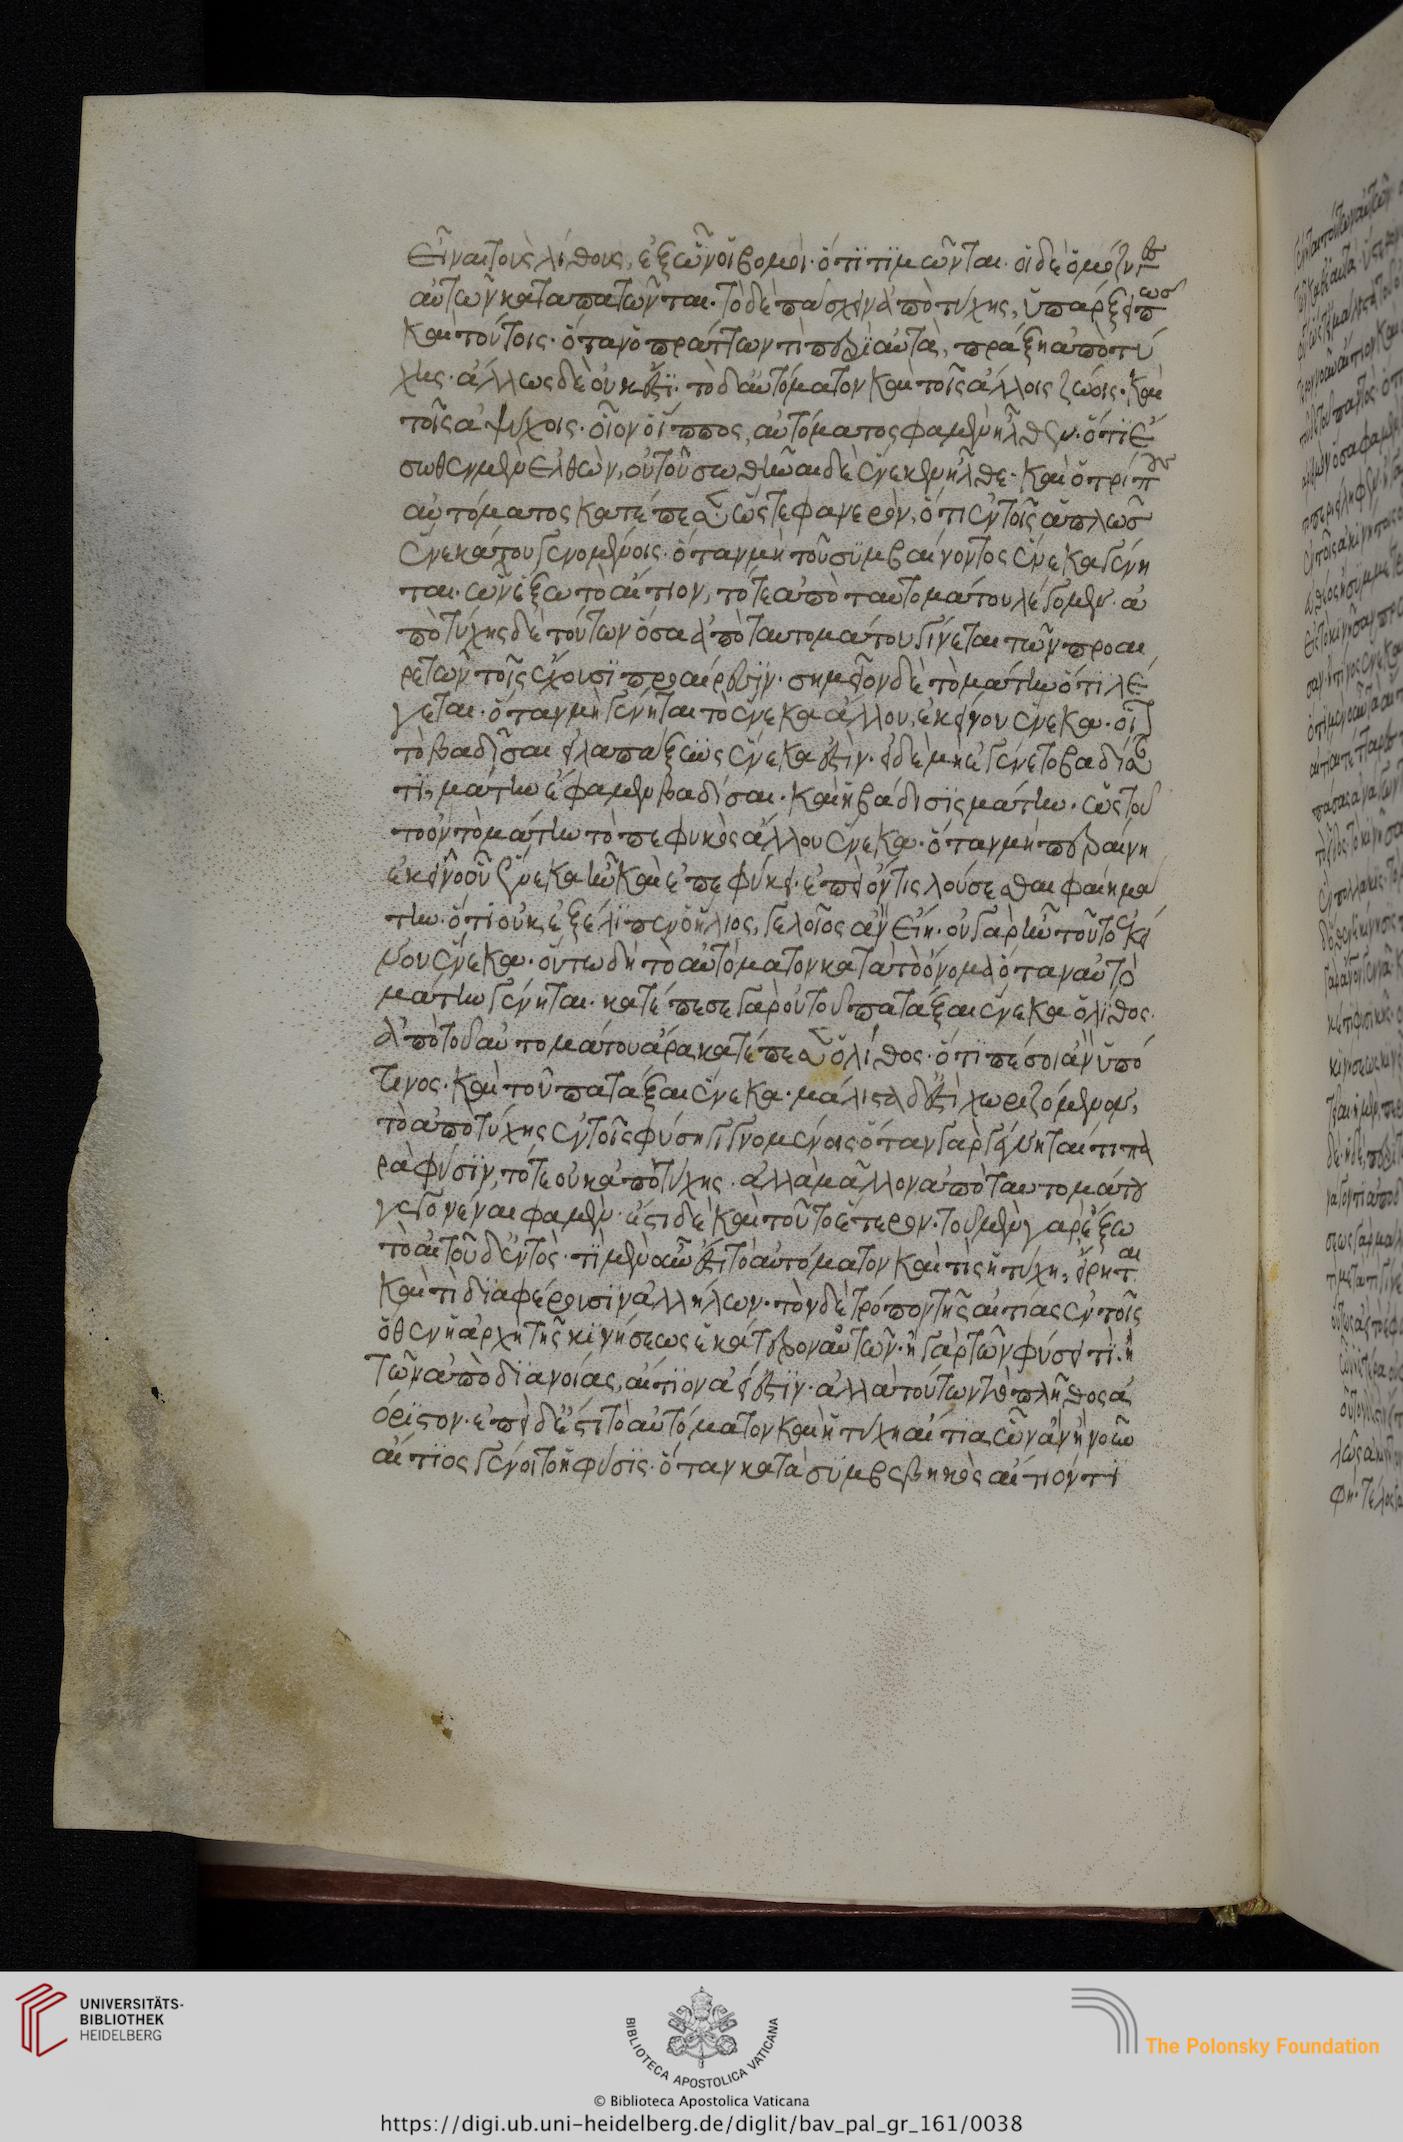 εἶναι τοὺς λίθους, ἐξ ὧν οἱ βομοὶ· ὅτι τιμῶνται· οἱ δὲ ὁμόζυγες
αὐτῶν καταπατῶνται· τὸ δὲ πάσχειν ἀπὸ τύχης, ὑπάρξει πως
καὶ τούτοις· ὅταν ὁ πράττων τὶ περὶ αὐτὰ, πράξη ἀπὸ τύ
χης· ἄλλως δὲ οὐκ ἔστι· τὸ δ' αὐτόματον καὶ τοῖς ἄλλοις ζώοις· καὶ
τοῖς ἀψύχοις· οἷον ὁ ἵππος, αὐτόματος φαμὲν ἦλθεν· ὅτι ἐ
σώθη μὲν ἐλθὼν, οὐ τοῦ σωθῆναι δὲ ἕνεκεν ἦλθε· καὶ ὁ τρίπους
αὐτόματος κατέπεσεν· ὥστε φανερὸν, ὅτι ἐν τοῖς ἁπλῶς
ἕνεκά του γενομένοις· ὅταν μὴ τοῦ συμβαίνοντος ἕνεκα γένη
ται· ὧν ἔξω τὸ αἴτιον, τότε ἀπὸ ταυτομάτου λέγομεν· ἀ
πὸ τύχης δὲ τούτων ὅσα ἀπὸ ταυτομάτου γίνεται τῶν προαι
ρετῶν τοῖς ἔχουσι προαίρεσιν· σημεῖον δὲ τὸ μάτην ὅτι λέ
γεται· ὅταν μὴ γένηται τὸ ἕνεκα ἄλλου, ἐκείνου ἕνεκα· οἷον
τὸ βαδίσαι εἰ λαπάξεως ἕνεκα ἐστὶν· εἰ δὲ μὴ ἐγένετο βαδίσαν
τι, μάτην ἔφαμεν βαδίσαι· καὶ ἡ βάδισις μάτην· ὡς τοῦ
το ὂν τὸ μάτην τὸ πεφυκὸς ἄλλου ἕνεκα· ὅταν μὴ περαίνη
ἐκεῖνο οὗ ἕνεκα ἦν καὶ ἐπεφύκει· ἐπεὶ ὅντις λούσεσθαι φαίη μά
την· ὅτι οὐκ ἐξέλιπεν ὁ ἥλιος, γελοῖος ἂν εἴη· οὐ γὰρ ἦν τοῦτο ἐκεί
νου ἕνεκα· οὕτω δὴ τὸ αὐτόματον κατὰ τὸ ὄνομα ὅταν αὐτὸ
μάτην γένηται· κατέπεσε γὰρ οὐ τοῦ πατάξαι ἕνεκα ὁ λίθος·
ἀπὸ τοῦ αὐτομάτου ἄρα κατέπεσεν ὁ λίθος· ὅτι πέσοι ἂν ὑπό
τινος· καὶ τοῦ πατάξαι ἕνεκα· μάλιστα δ' ἐστὶ χωριζόμενον,
τὸ ἀπὸ τύχης ἐν τοῖς φύση γιγνομένοις ὅταν γὰρ γένηταί τι πα
ρὰ φύσιν, τότε οὐκ ἀπὸ τύχης· ἀλλὰ μᾶλλον ἀπὸ ταυτομάτου
γεγονέναι φαμὲν· ἔστι δὲ καὶ τοῦτο ἕτερον· τοῦ μὲν γὰρ ἔξω
τὸ αἴτου δ' ἐντὸς· τὶ μὲν οὖν ἐστὶ τὸ αὐτόματον καὶ τὶς ἡ τύχη, εἴρηται
καὶ τὶ διαφέρουσιν ἀλλήλων· τὸν δὲ τρόπον τῆς αἰτίας ἐν τοῖς
ὅθεν ἡ ἀρχὴ τῆς κινήσεως ἑκάτερον αὐτῶν· ἢ γὰρ τῶν φύσει τὶ· ἢ
τῶν ἀπὸ διανοίας, αἴτιον ἀεί ἐστιν· ἀλλὰ τούτων τὸ πλῆθος ἀ
όριστον· ἐπεὶ δ' ἐστὶ τὸ αὐτόματον καὶ ἡ τύχη αἴτια ὧν ἂν ἢ νοῦς
αἴτιος γένοιτο ἢ φύσις· ὅταν κατὰ συμβεβηκὸς αἴτιόν τι
UNIVERSITÄTS-
BIBLIOTHEK
HEIDELBERG
BIBLIOTECA APOSTOLICA VATICANA
The Polonsky Foundation
© Biblioteca Apostolica Vaticana
https://digi.ub.uni-heidelberg.de/diglit/bav_pal_gr_161/0038